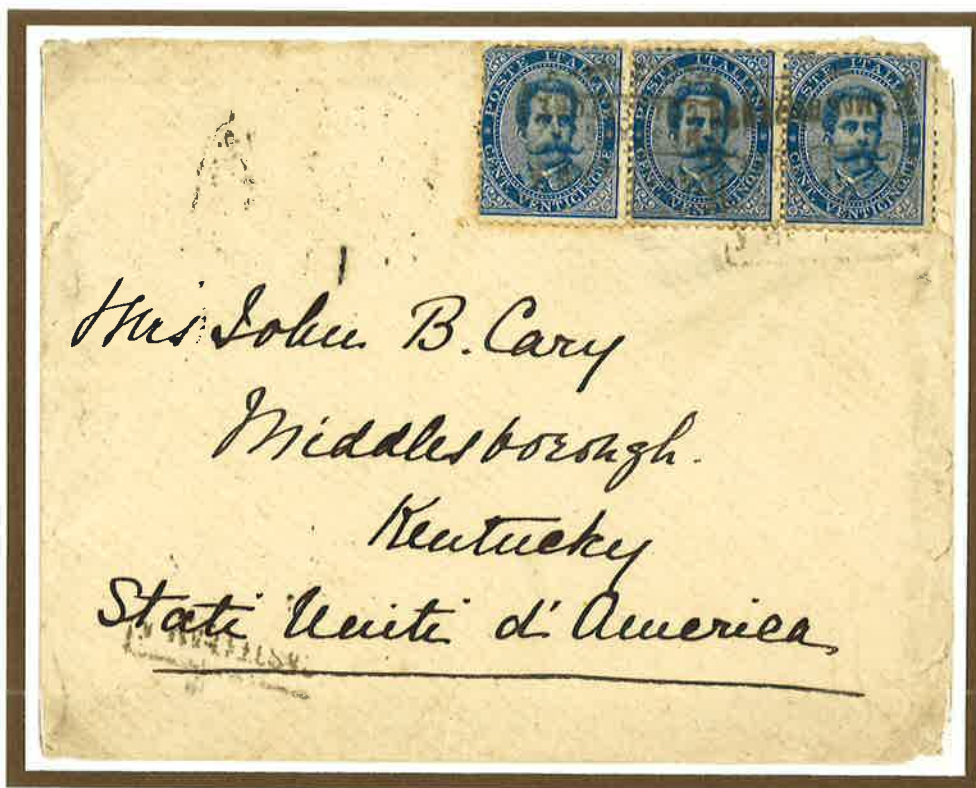 POSTE ITALIANE POSTE ITALIANE POSTE ITALIANE
CENT. VENTICINQUE CENT. VENTICINQUE CENT. VENTICINQUE
Mrs John B. Cary
Middlesborough.
Kentucky
Stati Uniti d'America